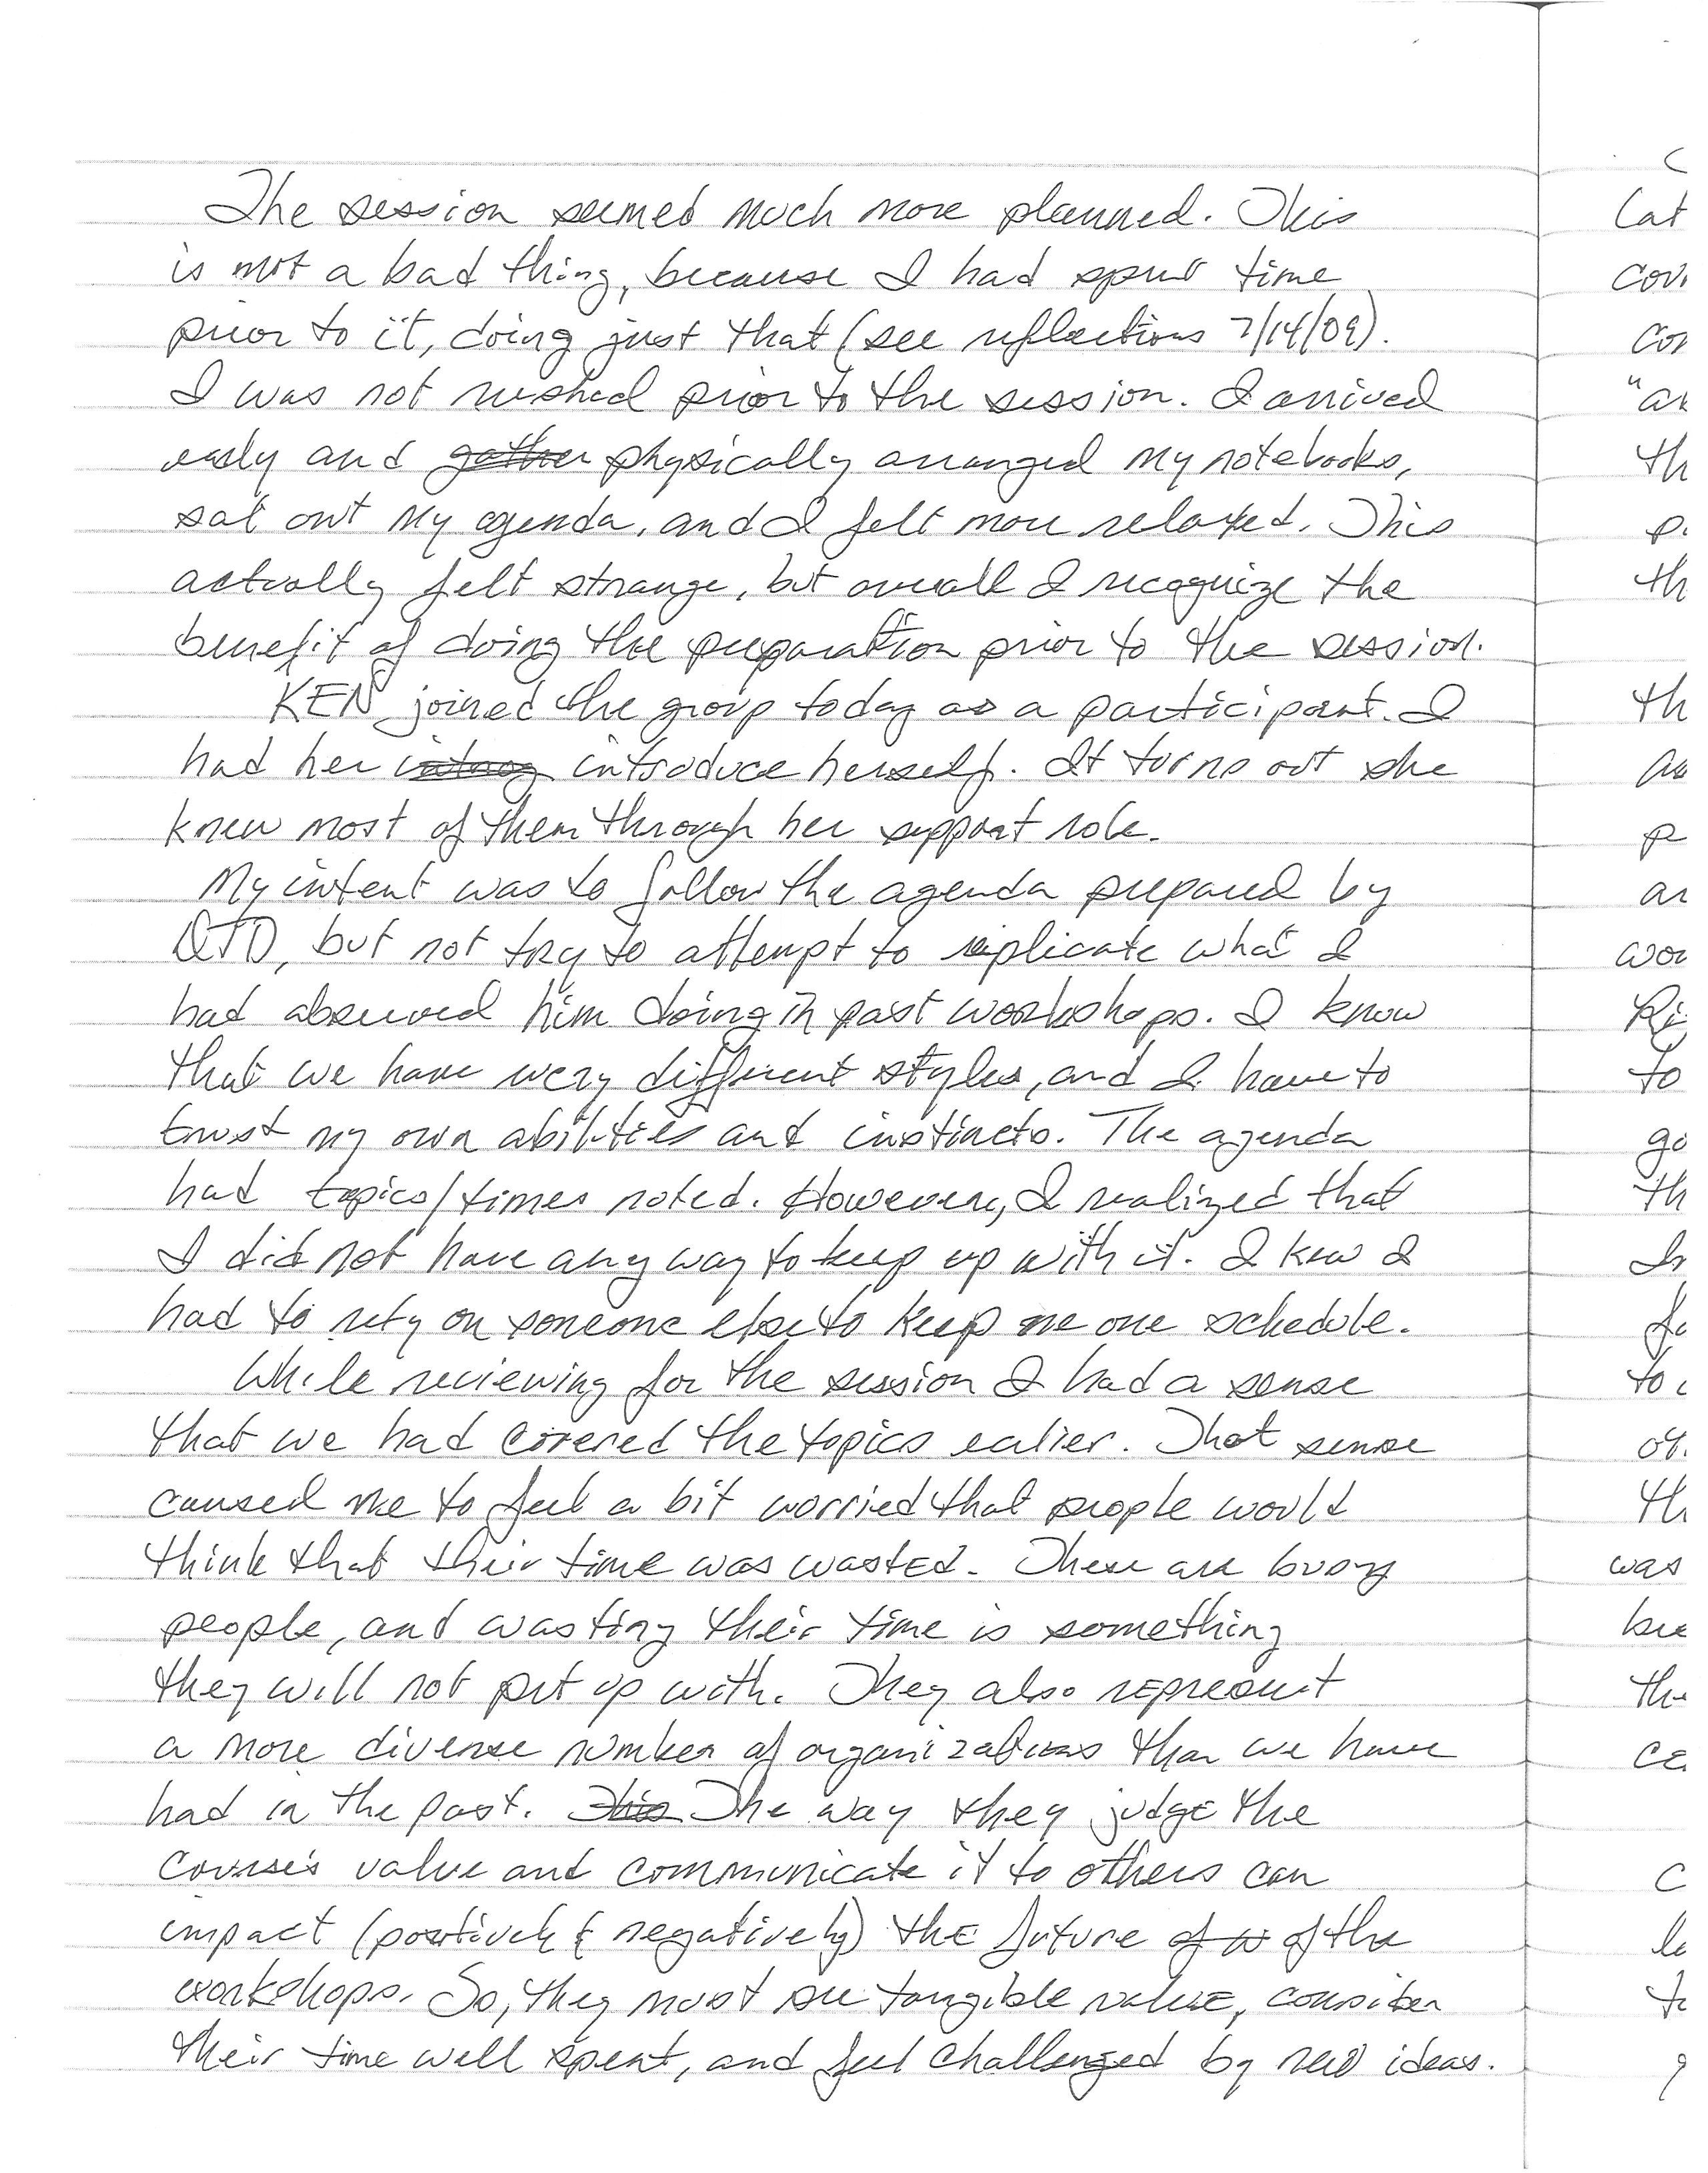 The session seemed much more planned. This
is not a bad thing, because I had spent time
prior to it, doing just that (see reflections 7/14/09).
I was not rushed prior to the session. I arrived
early and gather physically arranged my notebooks,
sat out my agenda, and I felt more relaxed. This
actually felt strange, but overall I recognize the
benefit of doing the preparation prior to the session.
KEN joined the group today as a participant. I
had her introduce herself. It turns out she
knew most of them through her support role.
My intent was to follow the agenda prepared by
DTD, but not try to attempt to replicate what I
had observed him doing in past workshops. I know
that we have very different styles, and I have to
trust my own abilities and instincts. The agenda
had topics/times noted. However, I realized that
I did not have any way to keep up with it. I knew I
had to rely on someone else to keep me one schedule.
While reviewing for the session I had a sense
that we had covered the topics ealier. That sense
caused me to feel a bit worried that people would
think that their time was wasted. These are busy
people, and wasting their time is something
they will not put up with. They also represent
a more diverse number of organizations than we have
had in the past. This The way they judge the
course's value and communicate it to others can
impact (positively & negatively) the future of w of the
workshops. So, they must see tangible value, consider
their time well spent, and feel challenged by new ideas.